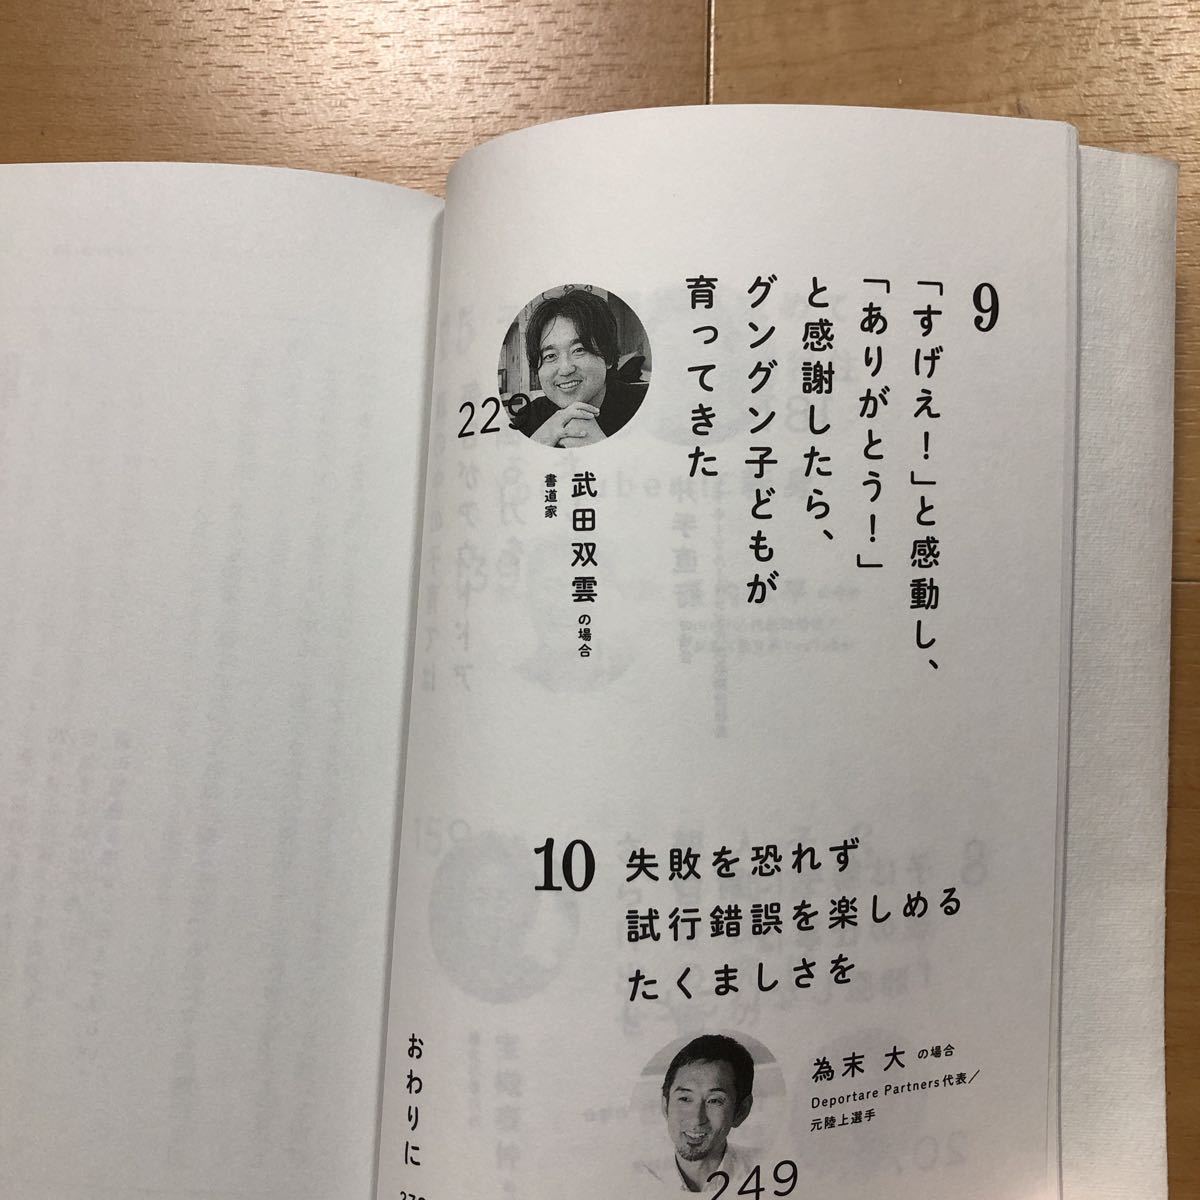 9
「すげえ！」と感動し、
「ありがとう！」
と感謝したら、
グングン子どもが
育ってきた
武田双雲の場合
書道家
229
10
失敗を恐れず
試行錯誤を楽しめる
たくましさを
為末 大の場合
Deportare Partners代表／
元陸上選手
249
おわりに